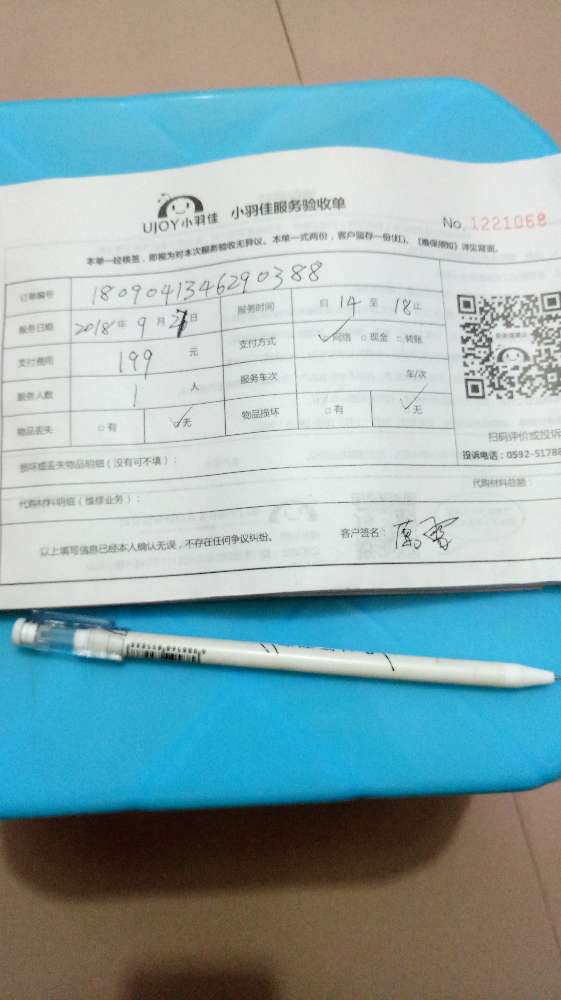 UJOY小羽佳 小羽佳服务验收单
No.1221068
本单一经核签，即视为对本次服务验收无异议。本单一式两份，客户留存一份(红)。《售保须知》详见背面。
订单编号 1809041346290388
服务日期 2018年 9月 日 服务时间 自 14 至 18止
支付费用 199 元 支付方式 ☑网络 □现金 □转账
服务人数 1 人 服务车次 车/次
物品丢失 □有 ☑无 物品损坏 □有 ☑无
扫码评价或投诉
投诉电话：0592-51788
损坏或丢失物品明细（没有可不填）：
代购材料明细（维修业务）： 代购材料总额：
以上填写信息已经本人确认无误，不存在任何争议纠纷。 客户签名：